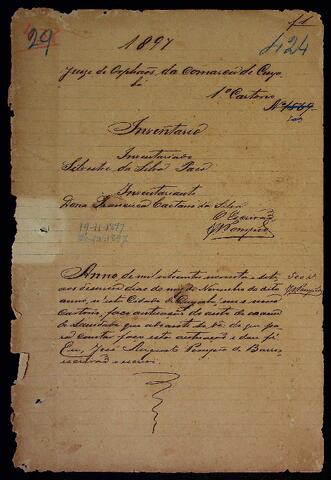 f 1
29
424
1897
Juizo de Orphãos da Comarca de Cuya
bá
1º Cartorio
Nº 1569
Inventario
Inventariado
Silvestre da Silva
Inventariante
Dona Francisca Caetano da Silva
O Escrivão
Pompêo
19-11-1897
Anno de mil oitocentos noventa e sete
aos desenove dias do mez de Novembro do dito
anno, n'esta Cidade de Cuyabá, em e meu
Cartorio, faço autoação do auto de
que adiante se vê: do que
para constar faço esta autoação e dou fé
Eu, José Pompêo de Barros
escrivão o escrevi.
Pompêo